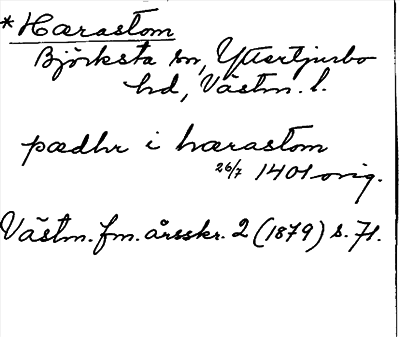 *Hærastom
Björksta sn, Yttertjurbo
hd, Västm. l.
pædhr i hærastom
26/7 1401 orig.
Västm. fm. årsskr. 2 (1879) s. 71.